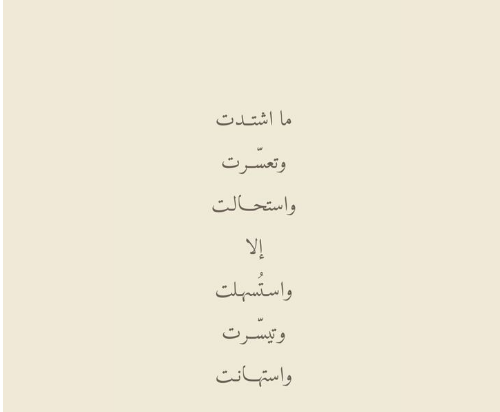 ما اشتــدت
وتعسّــرت
واستحــالت
إلا
واستُسهلت
وتيسّــرت
واستهــانت